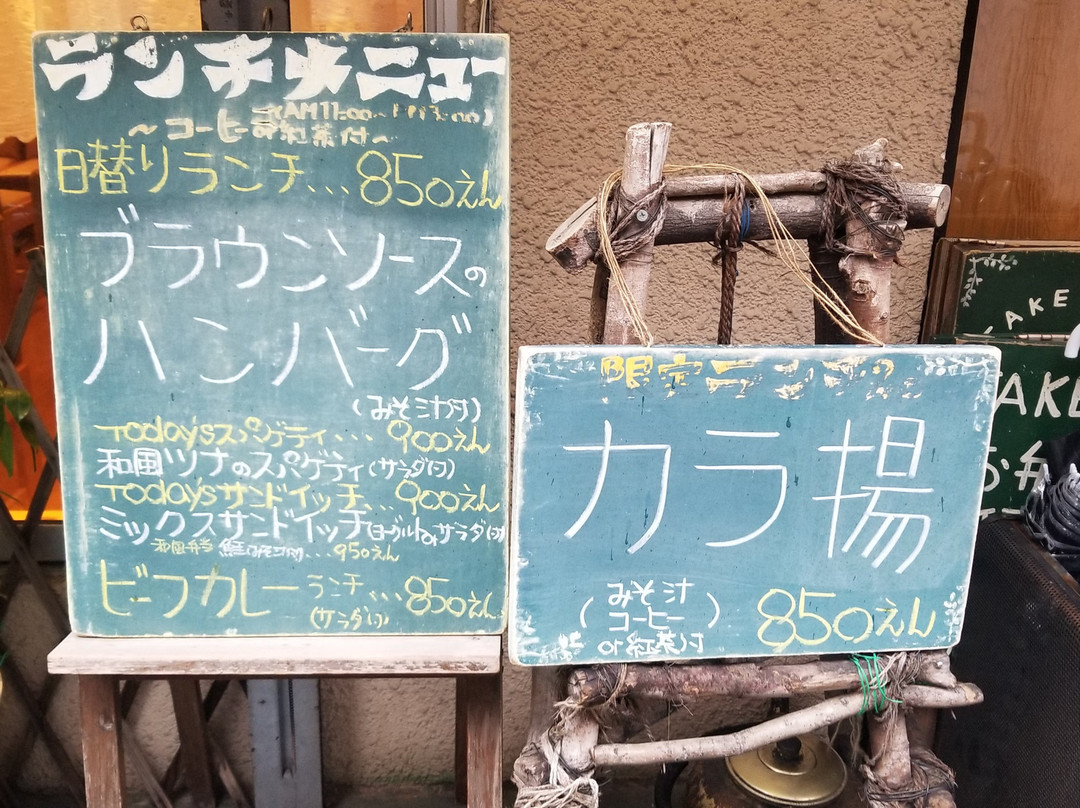 ランチメニュー
(AM11:00~PM3:00)
~コーヒーor紅茶付~
日替りランチ...850えん
ブラウンソースの
ハンバーグ
(みそ汁付)
Today'sスパゲティ....900えん
和風ツナのスパゲティ(サラダ付)
Today'sサンドイッチ...900えん
ミックスサンドイッチ(ヨーグルトorサラダ付)
和風弁当 ...950えん
ビーフカレーランチ...850えん
(サラダ付)
限定ランチ
カラ揚
(みそ汁
コーヒー
or紅茶付)
850えん
TAKE
TAKE
お弁